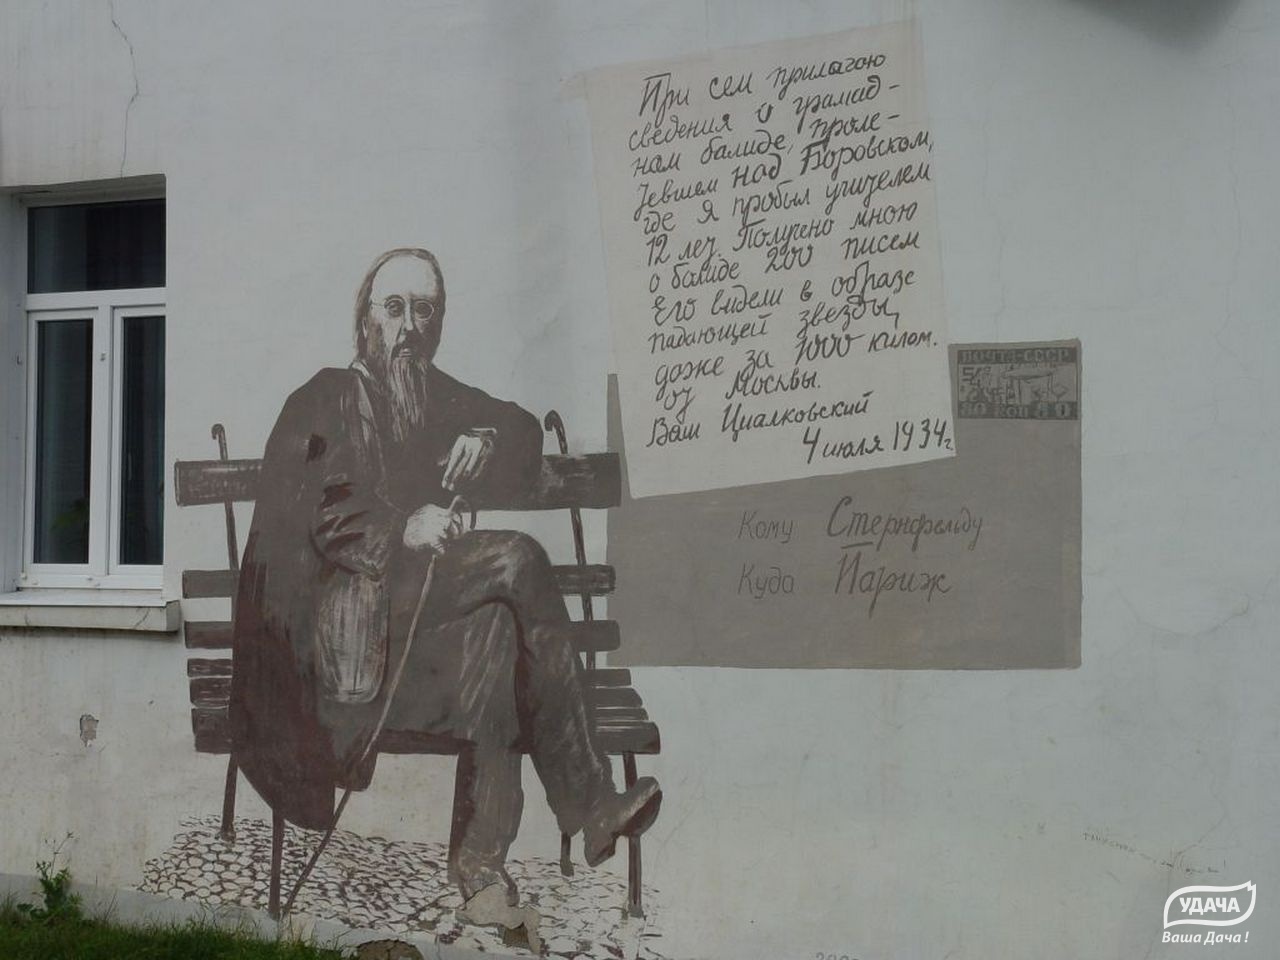 При сем прилагаю
сведения о громад-
ном балиде, проле-
тевшем над Боровском,
где я пробыл учителем
12 лет. Получено мною
о балиде 200 писем
Его видели в образе
падающей звезды,
даже за 1000 килом.
от Москвы.
Ваш Циалковский
4 июля 1934г.
ПОЧТА-СССР
50 КОП 50
Кому Стернфельду
Куда Париж
УДАЧА
Ваша Дача!